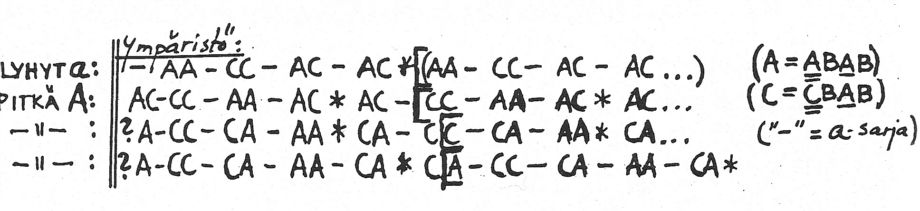 "Ympäristö":
LYHYT a: /-/AA - CC - AC - AC * (AA - CC - AC - AC ...) (A = ABAB)
PITKÄ A: AC-CC - AA - AC * AC - CC - AA - AC * AC... (C = CBAB)
-"- : ? A-CC - CA - AA * CA - CC - CA - AA * CA... ("-" = a-sarja)
-"- : ? A-CC - CA - AA - CA * CA - CC - CA - AA - CA *